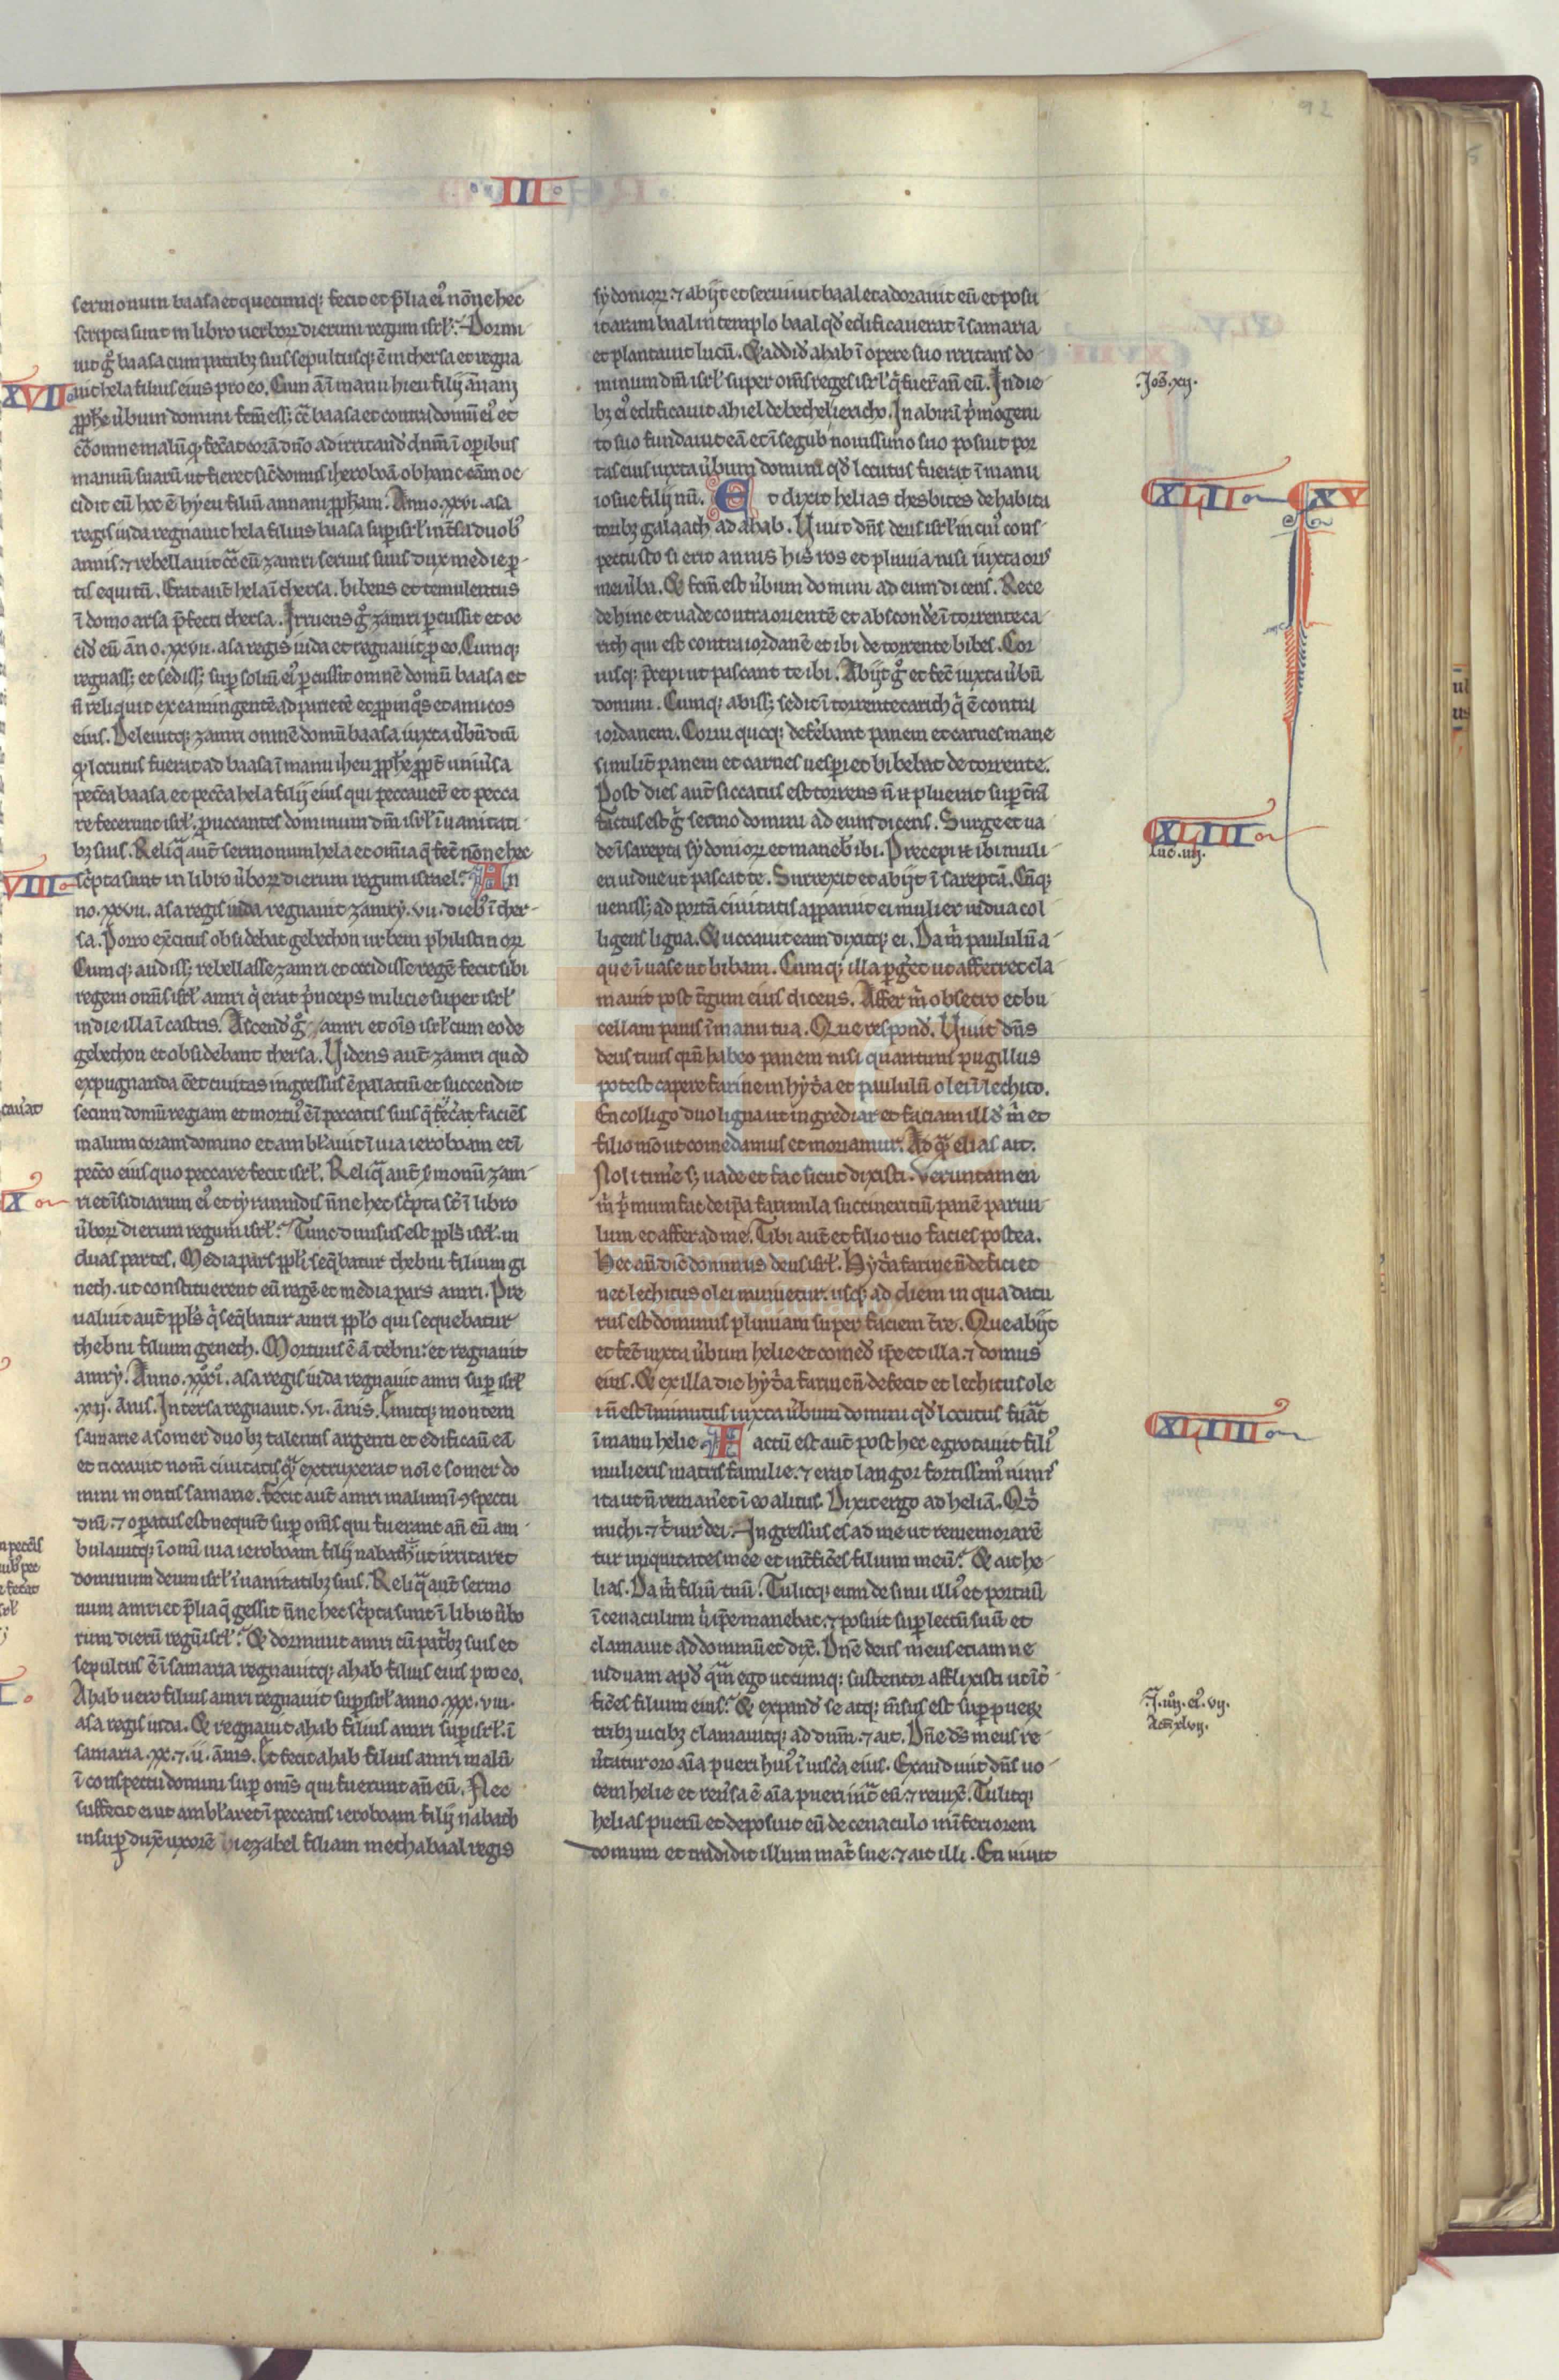 92
III
sermonum baasa et quecumq; fecit et p̄lia ei⁹ nōne hec
scripta sunt in libro uerborꝝ dierum regum isrł. Dormi
uit gͦ baasa cum patribꝫ suis sepultusq; ē in thersa et regna
XVII uit hela filius eius pro eo. Cum aī i manu hieu filij anani
ꝓphē ūbum domini fcm̄ ess; ct̄ baasa et contra domū ei⁹ et
ct̄ omne malū qͩ fec̄at corā dn̄o ad irritand̄ dn̄m ī oꝑibus
manuū suarū ut fieret sic̄ domus iheroboā ob hanc cām oc
cidit eū hoc ē hyeu filiū annani ꝓphām. Anno .xxvi. asa
regis iuda regnauit hela filius baasa suꝑ isrł in t̄sa duob⁹
annis ⁊ rebellauit ct̄ eū zamri seruus suus dux medie ꝑ
tis equitū. Erat aut̄ hela ī thersa. bibens et temulentus
ī domo arsa p̄fecti thersa. Irruens gͦ zamri ꝑcussit et oc
cid̄ eū ān̄o .xxvii. asa regis iuda et regnauit ꝓ eo. Cumq;
regnass; et sediss; suꝑ soliū ei⁹ ꝑcussit omnē domū baasa et
n̄ reliquit ex ea mingentē ad parietē et ꝓpinq̄os et amicos
eius. Deleuitq; zamri omnē domū baasa iuxta ūbū dn̄i
qͩ locutus fuerat ad baasa ī manu iheu ꝓphē ꝓpt̄ uniūsa
pecc̄a baasa et pecc̄a hela filij eius qui peccauer̄t et pecca
re fecerunt isrł. ꝓuocantes dominum dm̄ isrł ī uanitati
bꝫ suis. Reliq̄ aut̄ sermonum hela et om̄ia q̄ fec̄ nōne hec
VIII sc̄pta sunt in libro ūborꝝ dierum regum israel. An
no .xxvii. asa regis iuda regnauit zamry .vii. dieb⁹ ī ther
sa. Porro ex̄citus obsidebat gebethon urbem philistinorꝝ
Cumq; audiss; rebellasse zamri et occidisse regē fecit sibi
regem om̄is isrł amri q̄ erat p̄nceps milicie super isrł
in die illa ī castris. Ascend̄ gͦ amri et om̄is isrł cum eo de
gebethon et obsidebant thersa. Uidens aut̄ zamri quod
expugnanda eēt ciuitas ingressus ē palatiū et succendit
se cum domū regiam et mortu⁹ ē ī peccatis suis q̄ fec̄at faciēs
malum coram domino et ambłauit ī uia ieroboam et ī
pecc̄o eius quo peccare fecit isrł. Reliq̄ aut̄ s̄monū zam
IX ri et īsidiarum ei⁹ et tyrannidis n̄ne hec sc̄pta st̄ ī libro
ūborꝝ dierum regum isrł. Tunc diuisus est ꝓpłs isrł in
duas partes. Media pars ꝓpłi seq̄batur thebni filium gi
neth. ut constituerent eū regē et media pars amri. Pre
ualuit aut̄ ꝓpłs q̄ seq̄batur amri ꝓpło qui sequebatur
thebni filium geneth. Mortuus ē ā tebni: et regnauit
amry. Anno .xxxi. asa regis iuda regnauit amri suꝑ isrł
.xij. ānis. In tersa regnauit .vi. ānis. Emitq; montem
samarie a somer duobꝫ talentis argenti et edificau̅ eā
et uocauit nom̄ ciuitatis q̄ extruxerat noīe somer do
mini montis samarie. Fecit aut̄ amri malum ī ꝯspectu
dn̄i. ⁊ oꝑatus est nequit̄ suꝑ om̄s qui fuerant an̄ eū am
bulauitq; ī omī uia ieroboam filij nabath ut irritaret
dominum deum isrł ī uanitatibꝫ suis. Reliq̄ aut̄ sermo
num amri et p̄lia q̄ gessit n̄ne hec sc̄pta sunt ī libro ūbo
rum dierū regū isrł. Et dormiuit amri cū pat̄bꝫ suis et
sepultus ē ī samaria regnauitq; ahab filius eius pro eo.
Ahab uero filius amri regnauit suꝑ isrł anno .xxx.viii.
asa regis iuda. Et regnauit ahab filius amri suꝑ isrł ī
samaria .xx. ⁊ .ii. ānis. Et fecit ahab filius amri malū
ī conspectu domini suꝑ om̄s qui fuerunt an̄ eū. Nec
suffecit ei ut ambłaret ī peccatis ieroboam filij nabath
insuꝑ dux̄ uxorē hiezabel filiam methabaal regis
sydoniorꝝ. ⁊ abijt et seruiuit baal et adorauit eū et posu
it aram baal in templo baal qd̄ edificauerat ī samaria
et plantauit lucū. Et addid̄ ahab ī opere suo irritans do
minum dm̄ isrł super om̄s reges isrł q̄ fuer̄ an̄ eū. In die
bꝫ ei⁹ edificauit ahiel de bethel iericho. In abirā p̄mogeni
to suo fundauit eā et ī segub nouissimo suo posuit por
tas eius iuxta ūbum domini qd̄ locutus fuerat ī manu
iosue filij nū. Et dixit helias thesbites de habita
toribꝫ galaath ad ahab. Uiuit dn̄s deus isrł in cui⁹ cons
pectu sto si erit annis his ros et pluuia nisi iuxta oris
mei ūba. Et fcm̄ est ūbum domini ad eum dicens. Rece
de hinc et uade contra orientē et abscond̄e ī torrente ca
rith qui est contra iordanē et ibi de torrente bibes. Cor
uisq; p̄cepi ut pascant te ibi. Abijt gͦ et fec̄ iuxta ūbū
domini. Cumq; abiss; sedit ī torrente carith q̄ ē contra
iordanem. Corui quoq; defēbant panem et carnes mane
similit̄ panem et carnes uesꝑi et bibebat de torrente.
Post dies aut̄ siccatus est torrens n̄ n̄ pluerat suꝑ t̄rā
factus est gͦ sermo domini ad eum dicens. Surge et ua
de ī sarepta sydoniorꝝ et maneb̄ ibi. Precepi n̄ ibi muli
eri uidue ut pascat te. Surrexit et abijt ī sareptā. Cūq;
ueniss; ad portā ciuitatis apparuit ei mulier uidua col
ligens ligna. Et uocauit eam dixitq; ei. Da m̄ paululū a
que ī uase ut bibam. Cumq; illa ꝑḡet ut afferret cla
mauit post t̄gum eius dicens. Affer m̄ obsecro et bu
cellam panis ī manu tua. Que respond̄. Uiuit dn̄s
deus tuus qm̄ n̄ habeo panem nisi quantum pugillus
potest capere farine in hyd̄a et paululū olei ī lechito.
En colligo duo ligna ut ingrediar et faciam illd̄ m̄ et
filio mō ut comedamus et moriamur. Ad q̄ elias ait.
Noli tim̄e s; uade et fac sicut dixisti. Veruntamen
m̄ p̄mum fac de ip̄a farinula succinericiū panē paruu
lum et affer ad me. Tibi aut̄ et filio tuo facies postea.
Hec an̄ dic̄ dominus deus isrł. Hyd̄a farine n̄ deficiet
nec lechitus olei minuetur. usq; ad diem in qua datu
rus est dominus pluuiam super faciem t̄re. Que abijt
et fec̄ iuxta ūbum helie et comed̄ ip̄e et illa. ⁊ domus
eius. Et ex illa die hyd̄a farine n̄ defecit et lechitus ole
i n̄ est īminutus iuxta ūbum domini qd̄ locutus fuāt
ī manu helie. Factū est aut̄ post hec egrotauit fili⁹
mulieris matris familie. ⁊ erat langor fortissim⁹ nimis
ita ut n̄ remanēt ī eo alitus. Dixit ergo ad heliā. Qͥd
michi. ⁊ t̄ uir dei. Ingressus es ad me ut rememorarē
tur iniquitates mee et int̄fic̄es filium meū. Et ait he
lias. Da m̄ filiū tuū. Tulitq; eum de sinu illi⁹ et portau̅
ī cenaculum ū ip̄e manebat. ⁊ posuit suꝑ lectū suū et
clamauit ad dominū et dix̄. Dn̄e deus meus etiam ne
uiduam apd̄ q̄m ego utcumq; sustentor afflixisti ut īt̄
fic̄es filium eius. Et expand̄ se atq; m̄sus est suꝑ puerꝝ
tribꝫ uicibꝫ clamauitq; ad dn̄m. ⁊ ait. Dn̄e ds̄ meus re
ūtatur oro aīa pueri hui⁹ ī uisc̄a eius. Exaudiuit dn̄s uo
cem helie et reūsa ē aīa pueri int̄ eū. ⁊ reuix̄. Tulitq;
helias puerū et deposuit eū de cenaculo in īferiorem
domum et tradidit illum mat̄ sue. ⁊ ait illi. En uiuit
Jos̄. xij.
XLII XV
XLIII
luc. iiij.
XLIIII